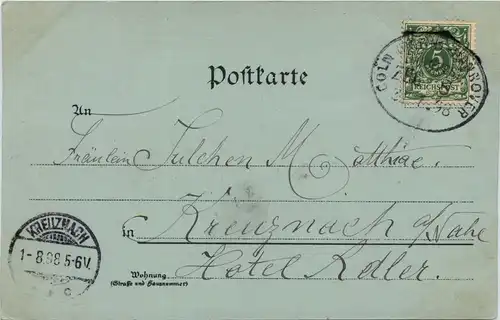 Postkarte
CÖLN HANNOVER
5
REICHSPOST
An
Fräulein Julchen Matthiae.
in Kreuznach a/Nahe
Hotel Adler.
Wohnung
(Straße und Hausnummer)
KREUZNACH
1-8.98.5-6V.
c